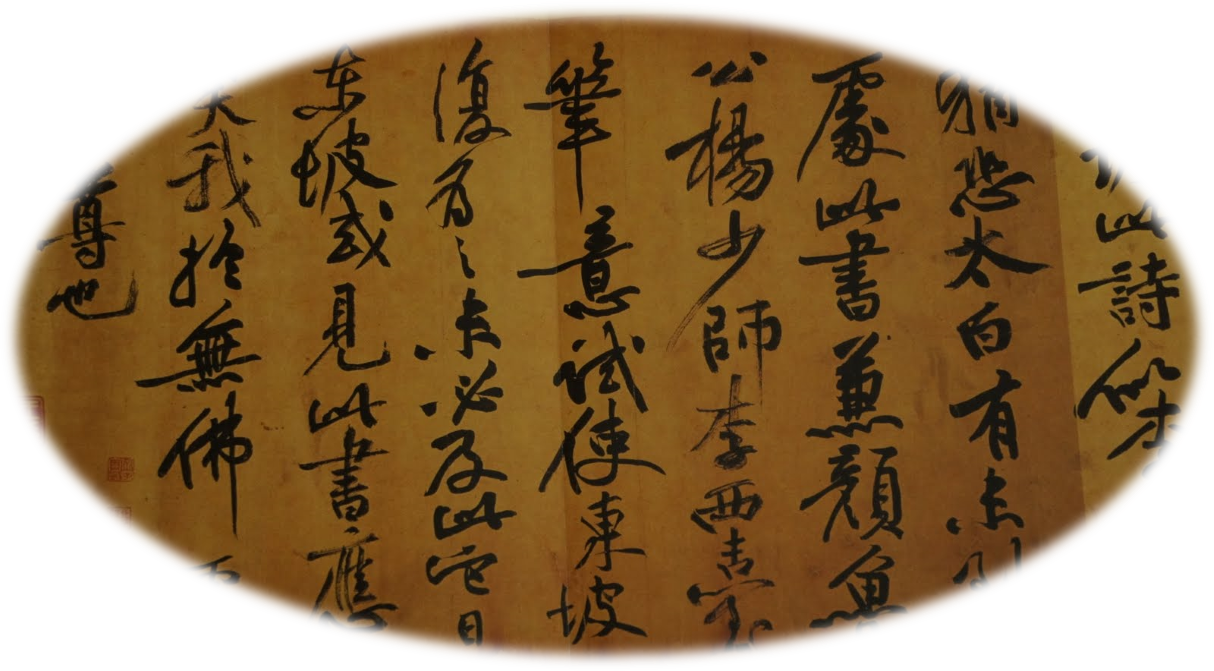 坡此詩似李
猶恐太白有未到
處此書兼顏魯
公楊少師李西臺
筆意試使東坡
復為之未必及此它日
東坡或見此書應
笑我於無佛
尊也